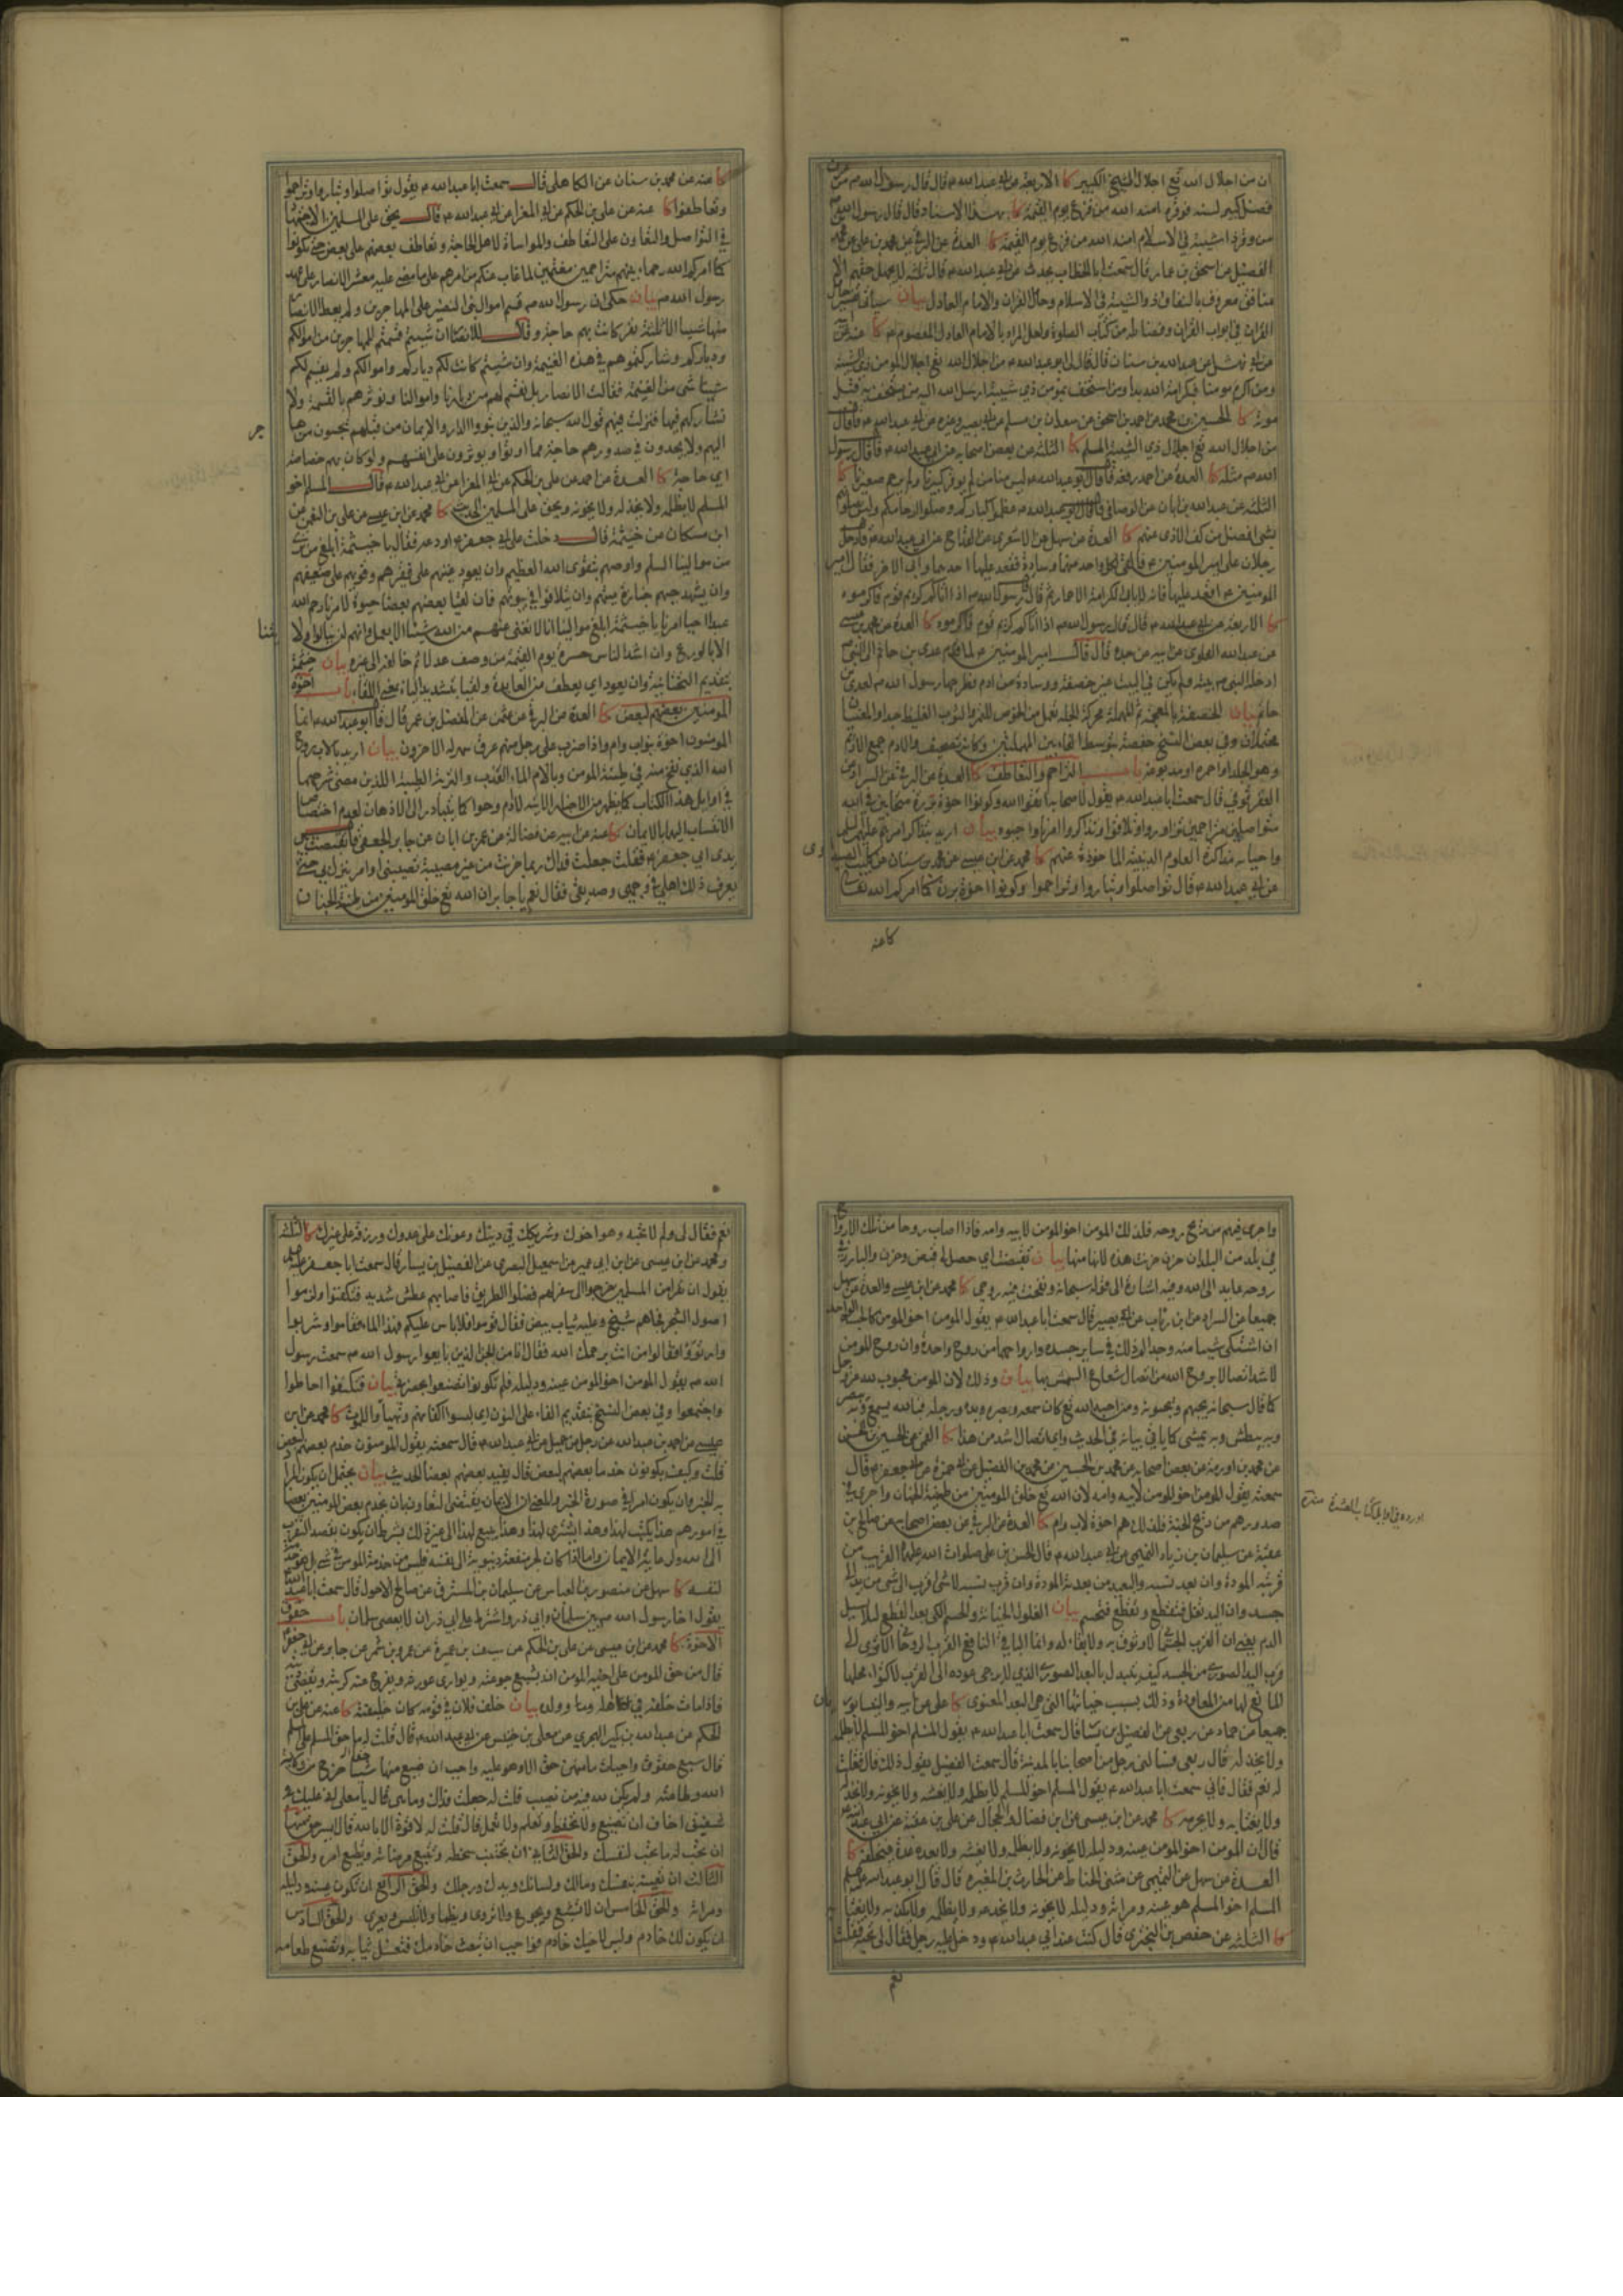 ان من اجلال الله تع اجلال الشيخ الكبير كا الاربعة عن ابي عبد الله م قال قال رسول الله ص من عرف
فضل كبير لسنه فوقره امنه الله من فزع يوم القيمة كا بهذا الاسناد قال قال رسول الله ص
من وقر ذا شيبة في الاسلام امنه الله من فزع يوم القيمة كا العدة عن البرقي عن محمد بن علي عن محمد بن
الفضيل عن اسحق بن عمار قال سمعت ابا الخطاب يحدث عن ابي عبد الله م قال ثلثة لا يجهل حقهم الا
منافق معروف بالنفاق ذو الشيبة في الاسلام وحامل القران والامام العادل بيان سياتي تفسير حامل
القران في ابواب القران وفضائله من كتاب الصلوة ولعل المراد بالامام العادل المعصوم م كا عنه عن
عن ابي نهشل عن عبد الله بن سنان قال قال لي ابو عبد الله م من اجلال الله تع اجلال المومن ذي الشيبة
ومن اكرم مومنا فبكرامة الله بدا ومن استخف بمومن ذي شيبة ارسل الله اليه من يستخف به قبل
موته كا الحسين بن محمد عن احمد بن اسحق عن سعدان بن مسلم عن ابي بصير وغيره عن ابي عبد الله م قال قال
من اجلال الله تع اجلال ذي الشيبة المسلم كا الثلثة عن بعض اصحابه عن ابي عبد الله م قال قال رسول
الله ص مثله كا العدة عن احمد رفعه قال قال ابو عبد الله م ليس منا من لم يوقر كبيرنا ولم يرحم صغيرنا كا
الثلثة عن عبد الله بن ابان عن الوصافي قال قال ابو عبد الله م عظموا كباركم وصلوا ارحامكم وليس تصلونهم
بشي افضل من كف الاذى عنهم كا العدة عن سهل عن الاشعري عن القداح عن ابي عبد الله م قال دخل
رجلان على امير المومنين م فالقى لكل واحد منهما وسادة فقعد عليها احدهما وابى الاخر فقال امير
المومنين م اقعد عليها فانه لا يابى الكرامة الا حمار ثم قال قال رسول الله ص اذا اتاكم كريم قوم فاكرموه
كا الاربعة عن ابي عبد الله م قال قال رسول الله ص اذا اتاكم كريم قوم فاكرموه كا العدة عن محمد بن عيسى
عن عبد الله العلوي عن ابيه عن جده قال قال امير المومنين م لما قدم عدي بن حاتم الى النبي ص
ادخله النبي ص بيته ولم يكن في البيت غير خصفة ووسادة من ادم فطرحها رسول الله ص لعدي بن
حاتم بيان الخصفة بالمعجمة ثم المهملة محركة الجلة تعمل من الخوص للتمر والثوب الغليظ جدا والمعنيان
محتملان وفي بعض النسخ حفصة بتوسط الفاء بين المهملتين وكانه تصحيف والادم جمع الاديم
وهو الجلد او احمره او مدبوغه باب التراحم والتعاطف كا العدة عن البرقي عن السراد عن
العقرقوفي قال سمعت ابا عبد الله م يقول لاصحابه اتقوا الله وكونوا اخوة بررة متحابين في الله
متواصلين متراحمين تزاوروا وتلاقوا وتذاكروا امرنا واحيوه بيان اريد بتذاكر امرهم عليهم السلم
واحيائه مذاكرة العلوم الدينية الماخوذة عنهم كا محمد عن ابن عيسى عن محمد بن سنان عن كليب الصيداوي
عن ابي عبد الله م قال تواصلوا وتباروا وتراحموا وكونوا اخوة بررة كما امركم الله تعالى
كا عنه
كا عنه عن محمد بن سنان عن الكاهلي قال سمعت ابا عبد الله م يقول تواصلوا وتباروا وتراحموا
وتعاطفوا كا عنه عن علي بن الحكم عن ابي المغرا عن ابي عبد الله م قال يحق على المسلمين الاجتهاد
في التواصل والتعاون على التعاطف والمواساة لاهل الحاجة وتعاطف بعضهم على بعض حتى تكونوا
كما امركم الله رحماء بينهم متراحمين مغتمين لما غاب عنكم من امرهم على ما مضى عليه معشر الانصار على عهد
رسول الله ص بيان حكي ان رسول الله ص قسم اموال بني النضير على المهاجرين ولم يعط الانصار
منها شيئا الا ثلثة نفر كانت بهم حاجة وقال للانصار ان شئتم قسمتم للمهاجرين من اموالكم
ودياركم وشاركتموهم في هذه الغنيمة وان شئتم كانت لكم دياركم واموالكم ولم يقسم لكم
شيئا شي من الغنيمة فقالت الانصار بل نقسم لهم من ديارنا واموالنا ونوثرهم بالقسمة ولا
نشاركهم فيها فنزلت فيهم قول الله سبحانه والذين تبووا الدار والايمان من قبلهم يحبون من هاجر
اليهم ولا يجدون في صدورهم حاجة مما اوتوا ويوثرون على انفسهم ولو كان بهم خصاصة
اي حاجة كا العدة عن احمد عن علي بن الحكم عن ابي المغرا عن ابي عبد الله م قال المسلم اخو
المسلم لا يظلمه ولا يخذله ولا يخونه ويحق على المسلمين الحديث كا محمد عن ابن عيسى عن علي بن النعمن عن
ابن مسكان عن خيثمة قال دخلت على ابي جعفر م اودعه فقال يا خيثمة ابلغ من ترى
من موالينا السلم واوصهم بتقوى الله العظيم وان يعود غنيهم على فقيرهم وقويهم على ضعيفهم
وان يشهد حيهم جنازة ميتهم وان يتلاقوا في بيوتهم فان لقيا بعضهم بعضا حيوة لامرنا رحم الله
عبدا احيا امرنا يا خيثمة ابلغ موالينا انا لا نغني عنهم من الله شيئا الا بعمل وانهم لن ينالوا ولايتنا
الا بالورع وان اشد الناس حسرة يوم القيمة من وصف عدلا ثم خالفه الى غيره بيان خيثمة
بتقديم التحتانية وان يعود اي يعطف من العايدة ولقيا بتشديد الياء بمعنى اللقاء باب اخوة
المومنين بعضهم لبعض كا العدة عن البرقي عن عثمن عن المفضل بن عمر قال قال ابو عبد الله م انما
المومنون اخوة بنو اب وام واذا ضرب على رجل منهم عرق سهر له الاخرون بيان اريد بالاب روح
الله الذي نفخ منه في طينة المومن وبالام الماء العذب والتربة الطيبة اللذين مضى شرحهما
في اوايل هذا الكتاب كما يظهر من الاخبار الاتية لا ادم وحوا كما يتبادر الى الاذهان لعدم اختصاص
الانتساب اليهما بالايمان كا عنه عن ابيه عن فضالة عن عمر بن ابان عن جابر الجعفي قال تقبضت بين
يدي ابي جعفر م فقلت جعلت فداك ربما حزنت من غير مصيبة تصيبني او امر ينزل بي حتى
يعرف ذلك اهلي في وجهي وصديقي فقال نعم يا جابر ان الله تع خلق المومنين من طينة الجنان
واجرى فيهم من ريح روحه فلذلك المومن اخو المومن لابيه وامه فاذا اصاب روحا من تلك الارواح
في بلد من البلدان حزن حزنت هذه لانها منها بيان تقبضت اي حصل لي قبض وحزن والبارز في
روحه عايد الى الله وفيه اشارة الى قوله سبحانه ونفخت فيه من روحي كا محمد عن ابن عيسى والعدة عن سهل
جميعا عن السراد عن ابن رئاب عن ابي بصير قال سمعت ابا عبد الله م يقول المومن اخو المومن كالجسد الواحد
ان اشتكى شيئا منه وجد الم ذلك في ساير جسده وارواحهما من روح واحدة وان روح المومن
لاشد اتصالا بروح الله من اتصال شعاع الشمس بها بيان وذلك لان المومن محبوب لله عز وجل
كما قال سبحانه يحبهم ويحبونه ومن احبه الله تع كان سمعه وبصره ويده ورجله فبالله يسمع وبه يبصر
وبه يبطش وبه يمشي كما ياتي بيانه في الحديث واي اتصال اشد من هذا كا القمي عن الحسين بن الحسن
عن محمد بن اورمة عن بعض اصحابه عن محمد بن الحسين عن محمد بن الفضيل عن ابي حمزة عن ابي جعفر م قال
سمعته يقول المومن اخو المومن لابيه وامه لان الله تع خلق المومنين من طينة الجنان واجرى في
صدورهم من ريح الجنة فلذلك هم اخوة لاب وام كا العدة عن البرقي عن بعض اصحابه عن صالح بن
عقبة عن سليمان بن زياد التميمي عن ابي عبد الله م قال قال الحسن بن علي صلوات الله عليهما القريب من
قربته المودة وان بعد نسبه والبعيد من بعدته المودة وان قرب نسبه لا شي اقرب الى شي من يد الى
جسد وان اليد تغل فتقطع وتقطع فتحسم بيان الغلول الخيانة والحسم الكي بعد القطع ليلا يسيل
الدم يعني ان القرب الجسماني لا وثوق به ولا بقاء له وانما الباقي النافع القرب الروحاني
قرب اليد الصوري من الجسد كيف يتبدل بالبعد الصوري الذي لا يرجى عوده الى القرب لاكتواء محلها
المانع لها من المعاودة وذلك بسبب خيانتها التي هي البعد المعنوي كا علي عن ابيه والنيسابوريان
جميعا عن حماد عن ربعي عن الفضيل بن يسار قال سمعت ابا عبد الله م يقول المسلم اخو المسلم لا يظلمه
ولا يخذله قال ربعي فسالني رجل من اصحابنا بالمدينة قال سمعت الفضيل يقول ذلك قال فقلت
له نعم فقال فاني سمعت ابا عبد الله م يقول المسلم اخو المسلم لا يظلمه ولا يغشه ولا يخونه ولا يخذله
ولا يغتابه ولا يحرمه كا محمد عن ابن عيسى عن ابن فضال عن الحجال عن علي بن عقبة عن ابي عبد الله م
قال ان المومن اخو المومن عينه ودليله لا يخونه ولا يظلمه ولا يغشه ولا يعده عدة فيخلفه كا
العدة عن سهل عن التميمي عن مثنى الحناط عن الحارث بن المغيرة قال قال ابو عبد الله م
المسلم اخو المسلم هو عينه ومراته ودليله لا يخونه ولا يخدعه ولا يظلمه ولا يكذبه ولا يغتابه
كا الثلثة عن حفص بن البختري قال كنت عند ابي عبد الله م ودخل عليه رجل فقال لي تحبه فقلت
نعم
نعم فقال لي ولم لا تحبه وهو اخوك وشريكك في دينك وعونك على عدوك ورزقه على غيرك كا الثلثة
ومحمد عن ابن عيسى عن ابن ابي عمير عن اسمعيل البصري عن الفضيل بن يسار قال سمعت ابا جعفر م
يقول ان نفرا من المسلمين خرجوا الى سفر لهم فضلوا الطريق فاصابهم عطش شديد فتكنفوا ولزموا
اصول الشجر فجاءهم شيخ وعليه ثياب بيض فقال قوموا فلا باس عليكم فهذا الماء فقاموا وشربوا
وارتووا فقالوا من انت يرحمك الله فقال انا من الجن الذين بايعوا رسول الله ص سمعت رسول
الله ص يقول المومن اخو المومن عينه ودليله فلم تكونوا تضيعوا بحضرتي بيان فتكنفوا احاطوا
واجتمعوا وفي بعض النسخ بتقديم الفاء على النون اي لبسوا اكفانهم وتهياوا للموت كا محمد عن ابن
عيسى عن احمد بن عبد الله عن رجل عن جميل عن ابي عبد الله م قال سمعته يقول المومنون خدم بعضهم لبعض
قلت وكيف يكونون خدما بعضهم لبعض قال يفيد بعضهم بعضا الحديث بيان يحتمل ان يكون المراد
به الخبر وان يكون امرا في صورة الخبر والمعنى ان الايمان يقتضي التعاون بان يخدم بعض المومنين بعضا
في امورهم هذا يكتب لهذا وهذا يشتري لهذا وهذا يبيع لهذا الى غير ذلك بشرط ان يكون بقصد التقرب
الى الله ولرعاية الايمان واما اذا كان لجر منفعة دنيوية الى نفسه فليس من خدمة المومن في شي بل هو خدمة
لنفسه كا سهل عن منصور بن العباس عن سليمان بن المسترق عن صالح الاحول قال سمعت ابا عبد الله
يقول اخا رسول الله ص بين سلمان وابي ذر واشترط على ابي ذر ان لا يعصي سلمان باب حقوق
الاخوة كا محمد عن ابن عيسى عن علي بن الحكم عن سيف بن عميرة عن عمرو بن شمر عن جابر عن ابي جعفر م
قال من حق المومن على اخيه المومن ان يشبع جوعته ويواري عورته ويفرج عنه كربته ويقضي دينه
فاذا مات خلفه في اهله وولده بيان خلف فلان في قومه كان خليفته كا عنه عن علي بن
الحكم عن عبد الله بن بكير الهجري عن معلى بن خنيس عن ابي عبد الله م قال قلت له ما حق المسلم على المسلم
قال سبع حقوق واجبات ما منهن حق الا وهو عليه واجب ان ضيع منها شيئا خرج من ولاية
الله وطاعته ولم يكن لله فيه من نصيب قلت له جعلت فداك وما هي قال يا معلى اني عليك
شفيق اخاف ان تضيع ولا تحفظ وتعلم ولا تعمل قال قلت له لا قوة الا بالله قال ايسر حق منها
ان تحب له ما تحب لنفسك والحق الثاني ان تجتنب سخطه وتتبع مرضاته وتطيع امره والحق
الثالث ان تعينه بنفسك ومالك ولسانك ويدك ورجلك والحق الرابع ان تكون عينه ودليله
ومراته والحق الخامس ان لا تشبع ويجوع ولا تروى ويظما ولا تلبس ويعرى والحق السادس
ان يكون لك خادم وليس لاخيك خادم فواجب ان تبعث خادمك فتغسل ثيابه وتصنع طعامه